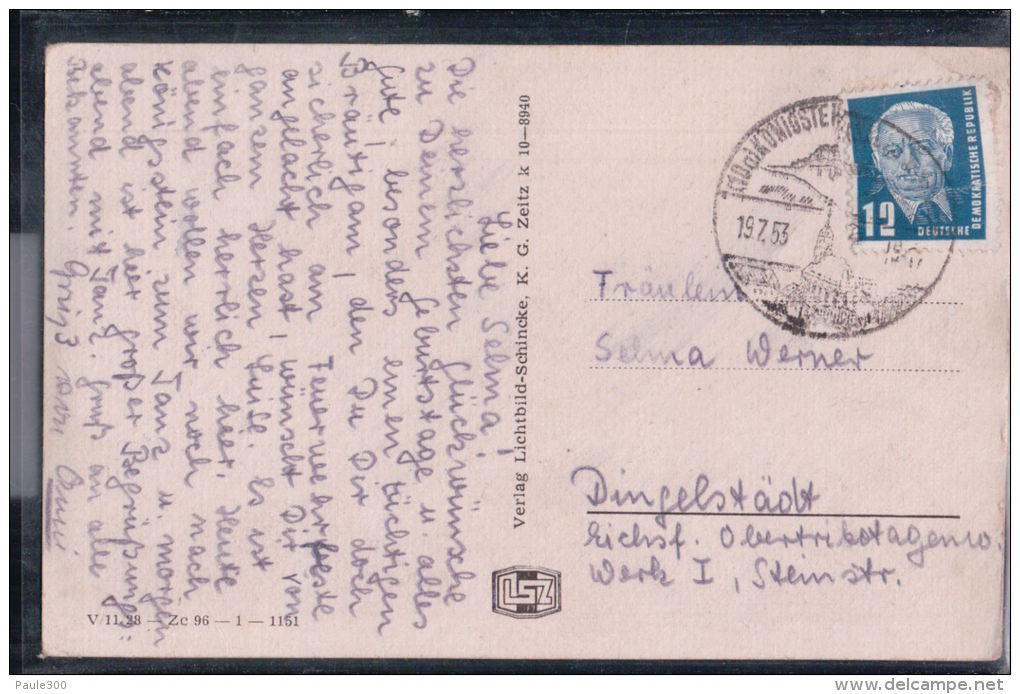 Liebe Selma!
Die herzlichsten Glückwünsche
zu Deinem Geburtstage u. alles
Gute! besonders einen tüchtigen
Bräutigam, den Du Dir doch
sicherlich am Feuerwehrfeste
angelacht hast, wünscht Dir von
ganzem Herzen Luise. Es ist
einfach herrlich hier. Heute
abend wollen wir noch nach
Königsstein zum Tanz u. morgen
abend ist hier großer Begrüßungs=
abend mit Tanz. Gruß an alle
Bekannten.
Verlag Lichtbild-Schincke, K. G. Zeitz k 10—8940
V/11/28 — Zc 96 — 1 — 1151
LSZ
KÖNIGSTEIN
19.7.53
12
DEUTSCHE
DEMOKRATISCHE REPUBLIK
Fräulein
Selma Werner
Dingelstädt
Eichsf. Obertrikotagenw.
Werk I, Steinstr.
Paule300
www.delcampe.net